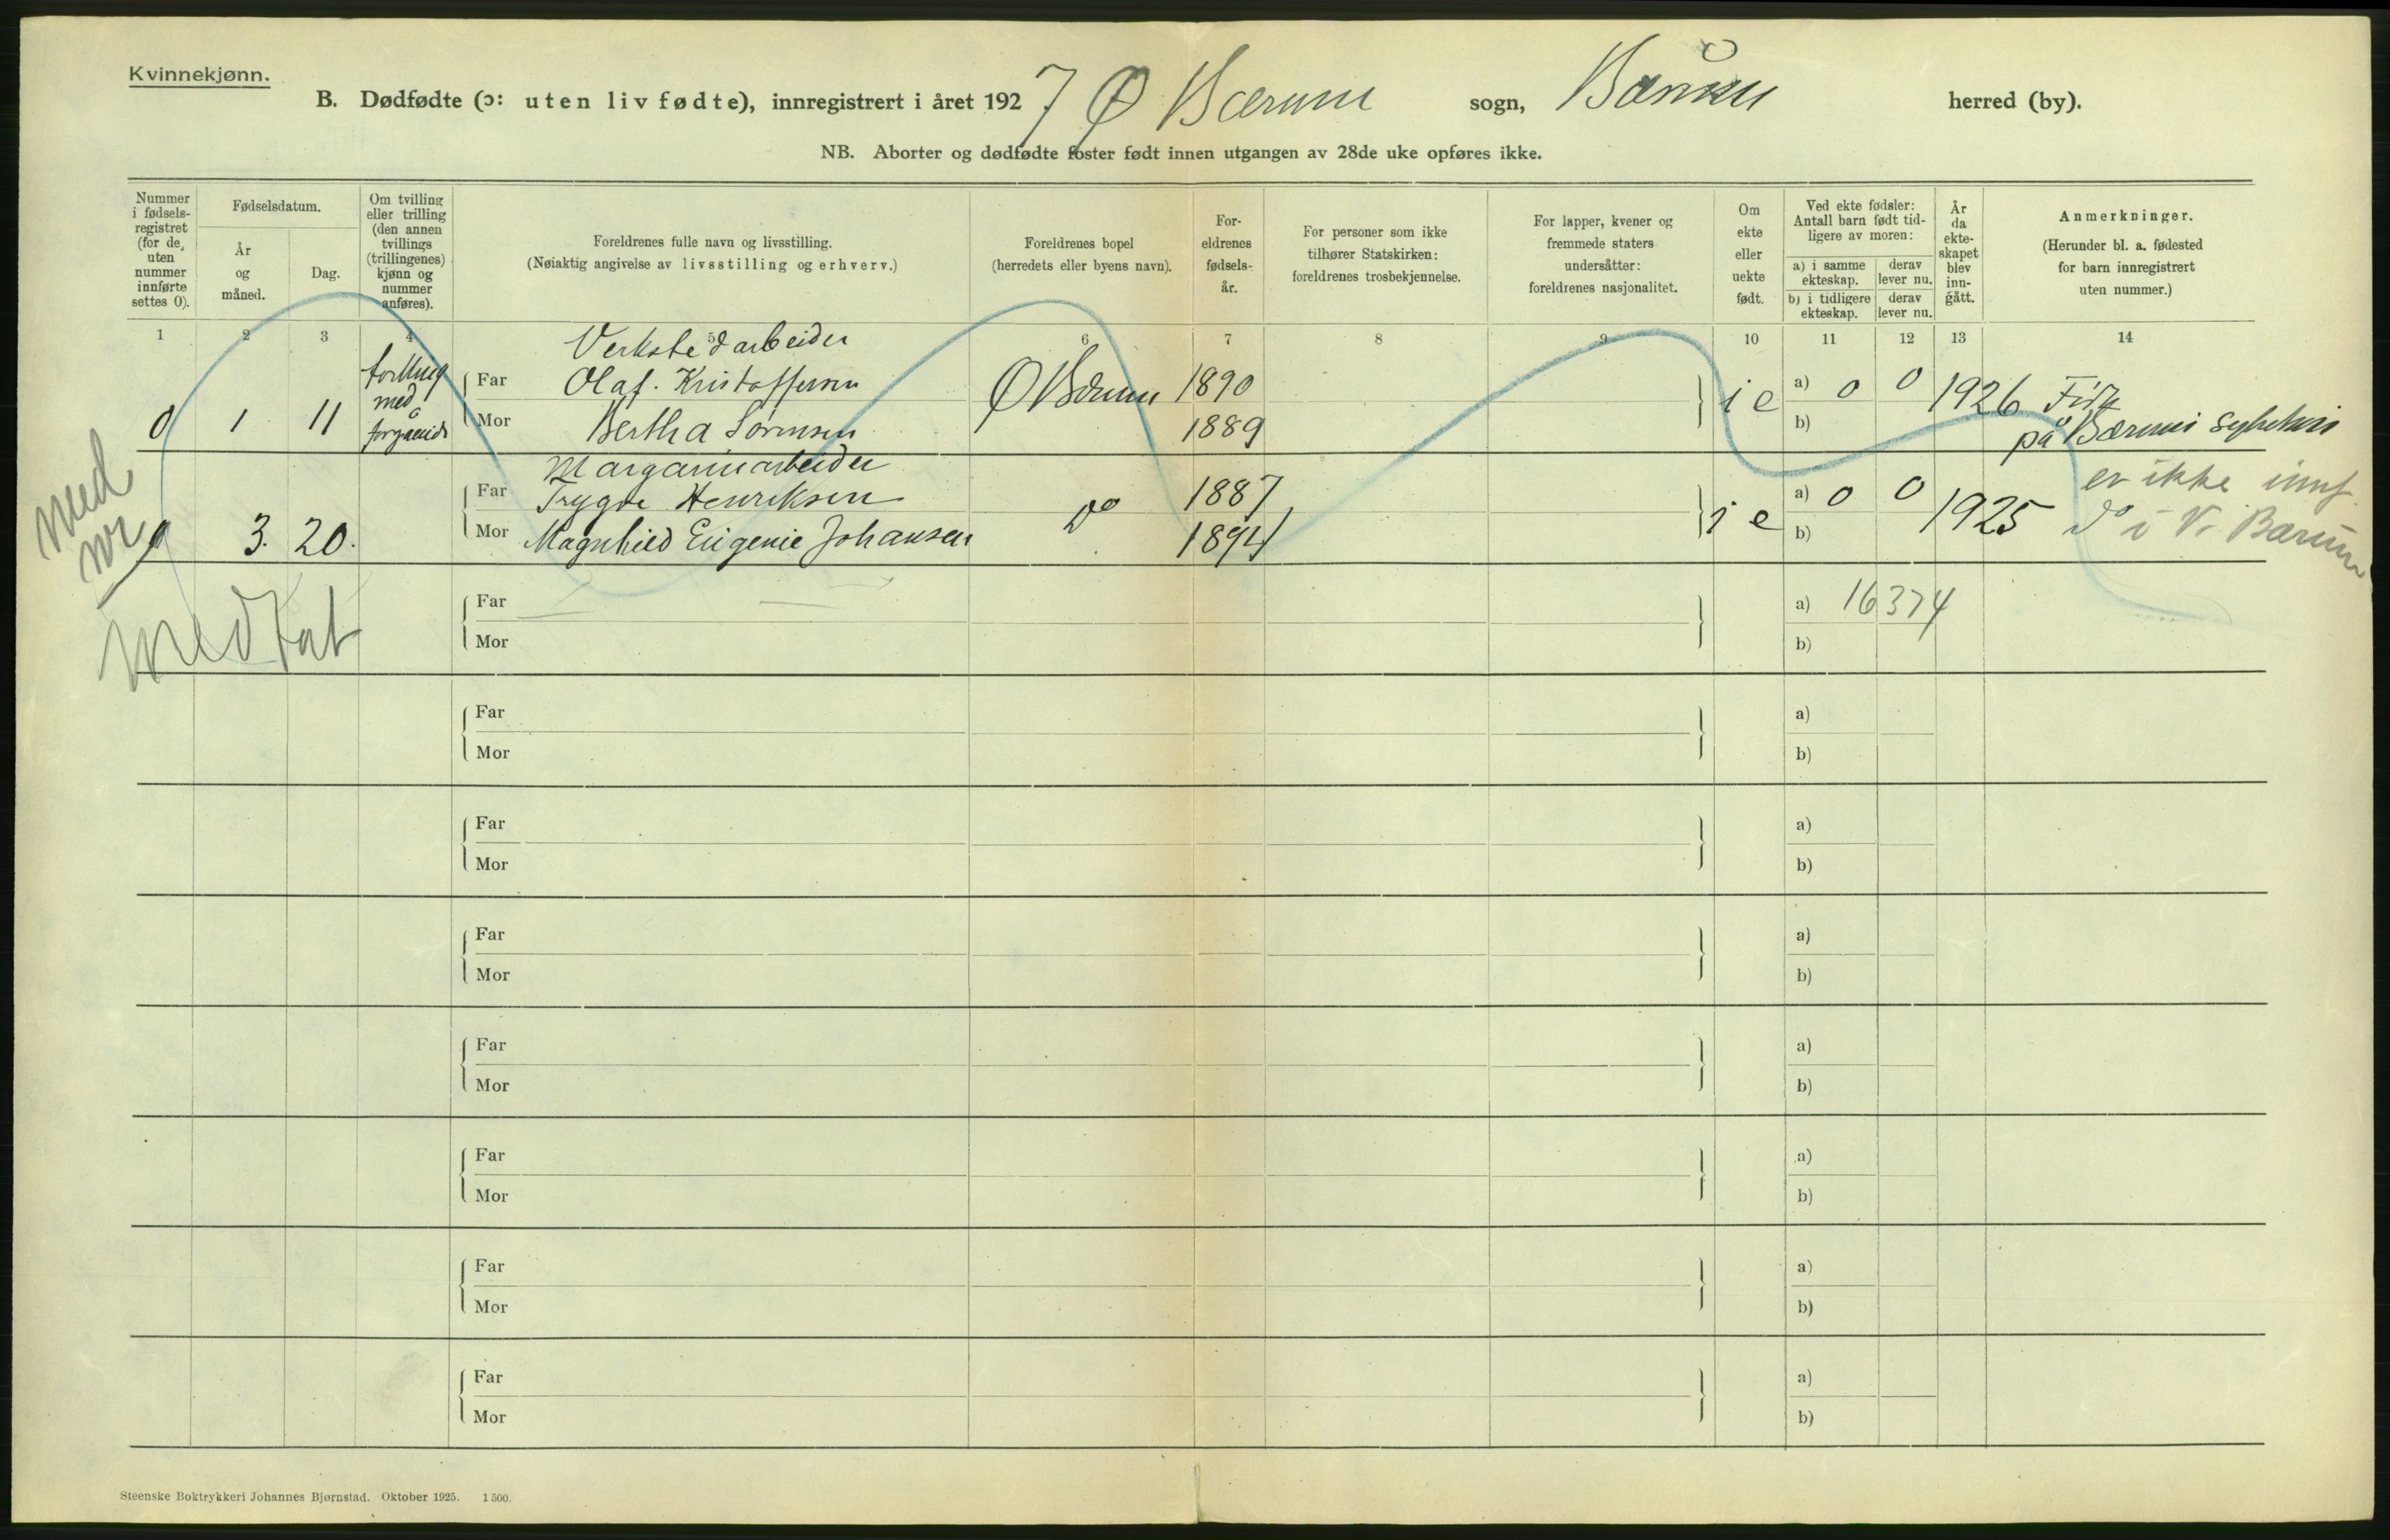 Kvinnekjønn.
B. Dødfødte (ɔ: uten liv fødte), innregistrert i året 1927 Ø Bærum sogn, Bærum herred (by).
NB. Aborter og dødfødte foster født innen utgangen av 28de uke opføres ikke.
Nummer i fødselsregistret (for de uten nummer innførte settes 0).
Fødselsdatum.
År og måned.
Dag.
Om tvilling eller trilling (den annen tvillings (trillingenes) kjønn og nummer anføres).
Foreldrenes fulle navn og livsstilling.
(Nøiaktig angivelse av livsstilling og erhverv.)
Foreldrenes bopel
(herredets eller byens navn).
Foreldrenes fødselsår.
For personer som ikke tilhører Statskirken: foreldrenes trosbekjennelse.
For lapper, kvener og fremmede staters undersåtter: foreldrenes nasjonalitet.
Om ekte eller uekte født.
Ved ekte fødsler: Antall barn født tidligere av moren:
a) i samme ekteskap.
derav lever nu.
b) i tidligere ekteskap.
derav lever nu.
År da ekteskapet blev inngått.
Anmerkninger.
(Herunder bl. a. fødested for barn innregistrert uten nummer.)
1 2 3 4 5 6 7 8 9 10 11 12 13 14
Verkstedarbeider
0 1 11 med
Far Olaf Kristoffersen Ø Bærum 1890 i e a) 0 0 1926
Mor Bertha Sørensen 1889 b) på Bærums sykehus
Margarinarbeider
0 3. 20.
Far Trygve Henriksen do 1887 i e a) 0 0 1925 do
Mor Magnhild Eugenie Johansen 1894 b)
er ikke innf.
i V. Bærum
med nr
medtat
Far a) 16374
Mor b)
Far a)
Mor b)
Far a)
Mor b)
Far a)
Mor b)
Far a)
Mor b)
Far a)
Mor b)
Far a)
Mor b)
Far a)
Mor b)
Steenske Boktrykkeri Johannes Bjørnstad. Oktober 1925. 1500.